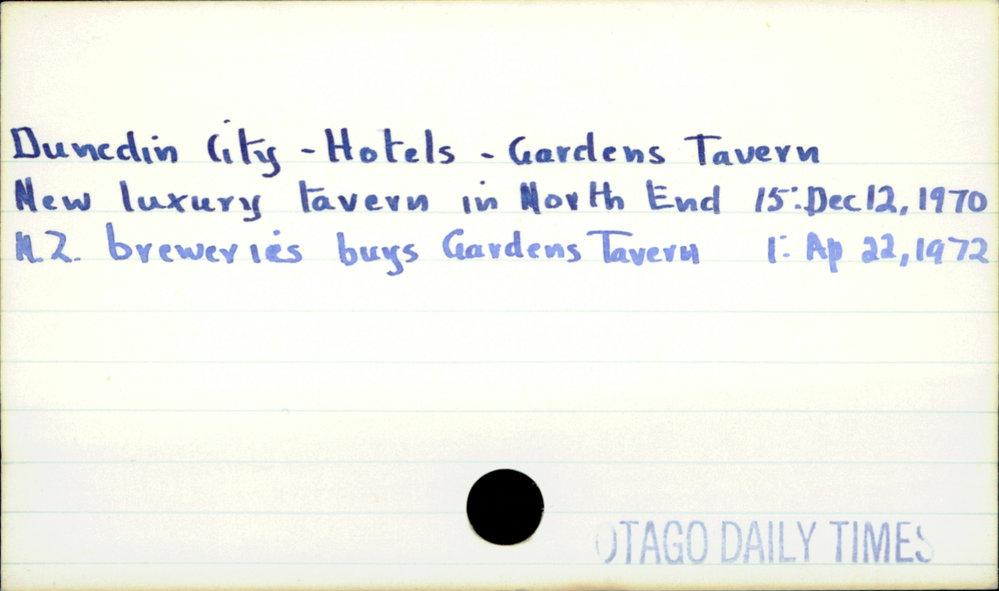 Dunedin City - Hotels - Gardens Tavern
New luxury tavern in North End 15: Dec 12, 1970
N.Z. breweries buys Gardens Tavern 1: Ap 22, 1972
OTAGO DAILY TIMES